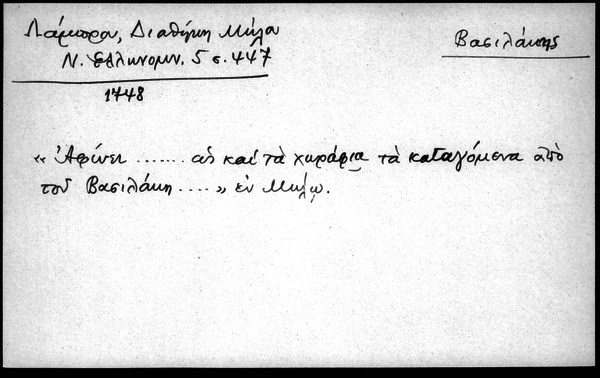 Λάμπρου, Διαθήκη Μήλου
Βασιλάκης
Ν. Ελληνομν. 5 σ. 447
1748
« Ἀφίνει ....... ὡς καί τὰ χωράφια τὰ καταγόμενα ἀπὸ
τοῦ Βασιλάκη .... » ἐν Μήλῳ.